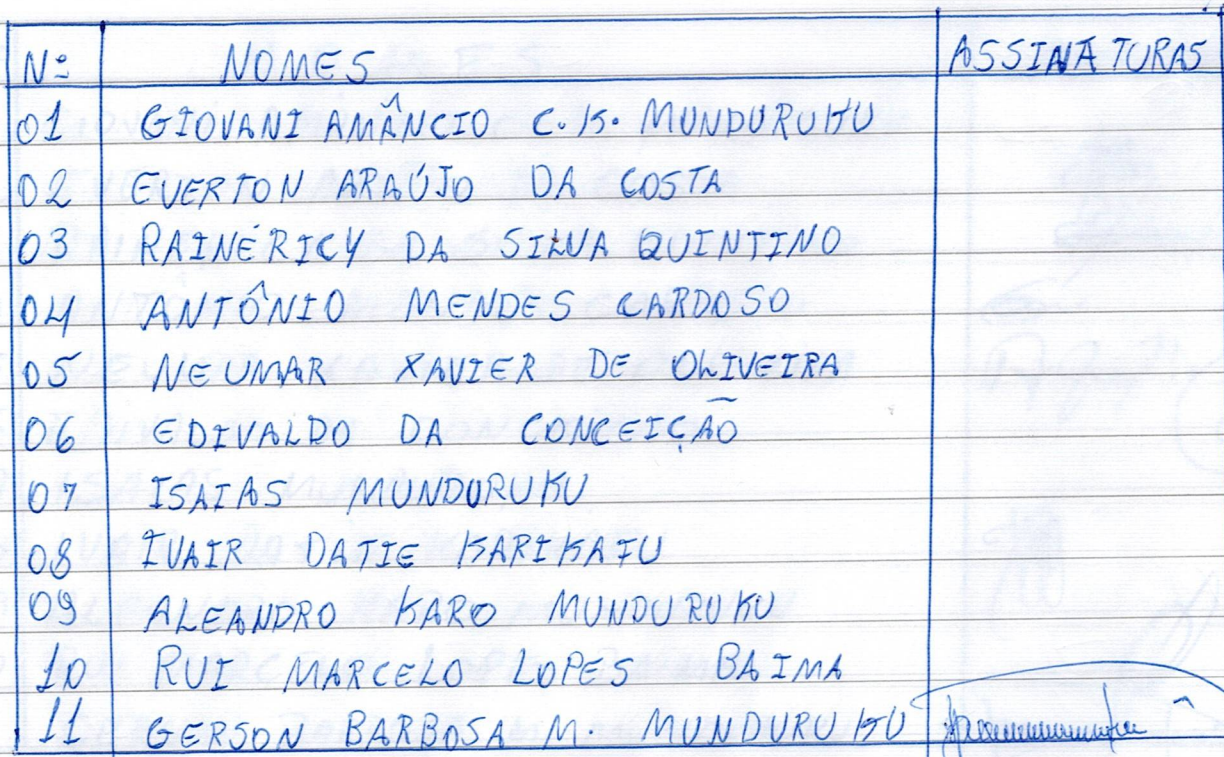 Nº NOMES ASSINATURAS
01 GIOVANI AMÂNCIO C. K. MUNDURUKU
02 EVERTON ARAÚJO DA COSTA
03 RAINÉRICY DA SILVA QUINTINO
04 ANTÔNIO MENDES CARDOSO
05 NEUMAR XAVIER DE OLIVEIRA
06 EDIVALDO DA CONCEIÇÃO
07 ISAIAS MUNDURUKU
08 IVAIR DATIE KARIKAFU
09 ALEANDRO KARO MUNDURUKU
10 RUI MARCELO LOPES BAIMA
11 GERSON BARBOSA M. MUNDURUKU